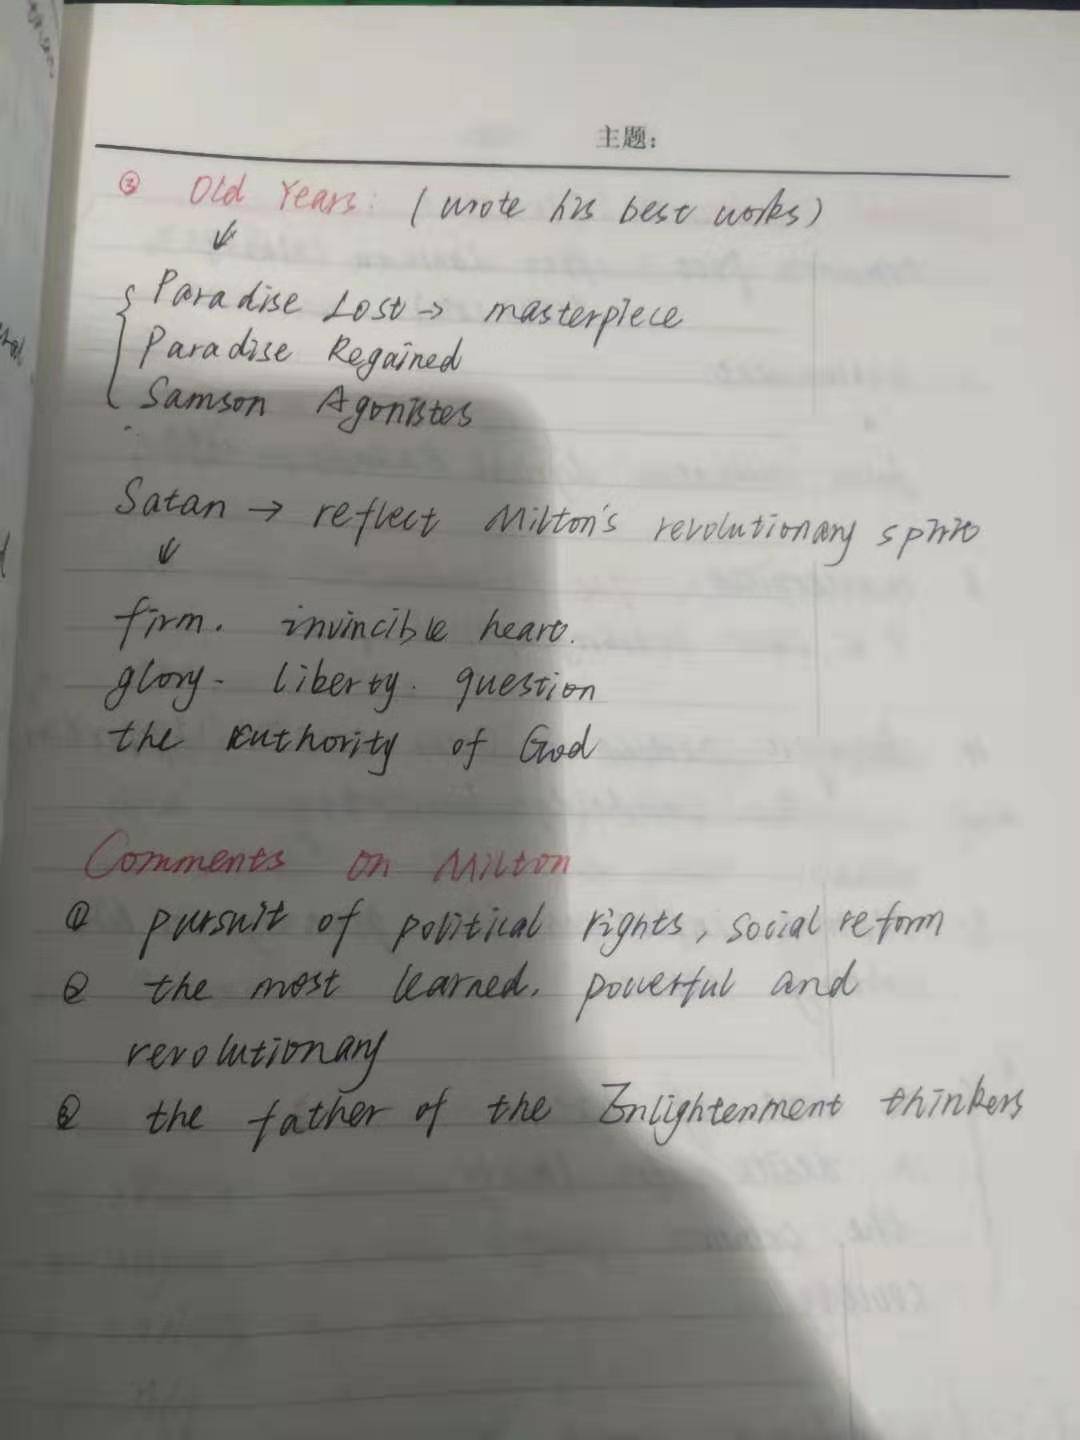 主题:
③ Old Years: (wrote his best works)
↓
{ Paradise Lost → masterpiece
Paradise Regained
Samson Agonistes
Satan → reflect Milton's revolutionary spirit
↓
firm. invincible heart.
glory. liberty. question
the authority of God
Comments on Milton
① pursuit of political rights, social reform
② the most learned. powerful and
revolutionary
③ the father of the Enlightenment thinkers